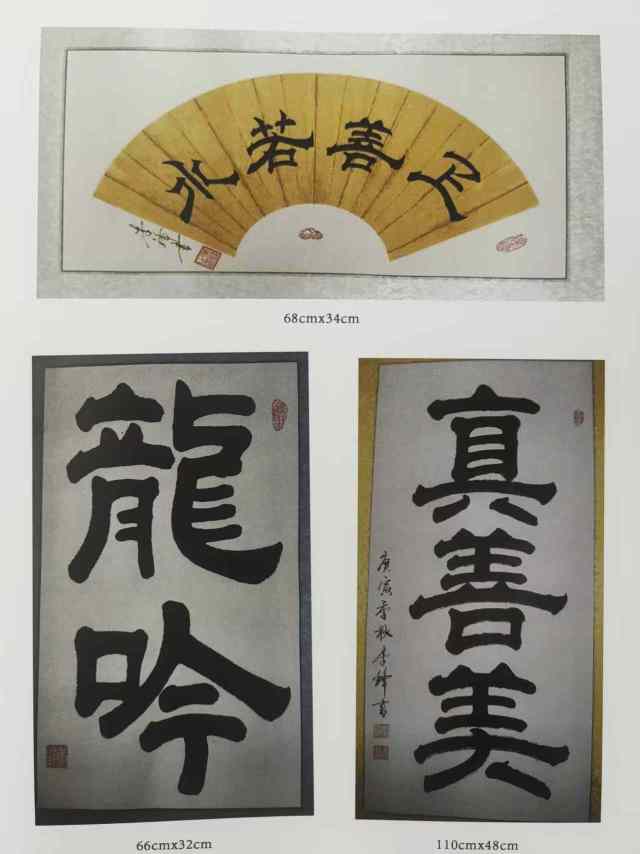 上善若水
68cmx34cm
龍吟
66cmx32cm
真善美
秋李鋒書
110cmx48cm